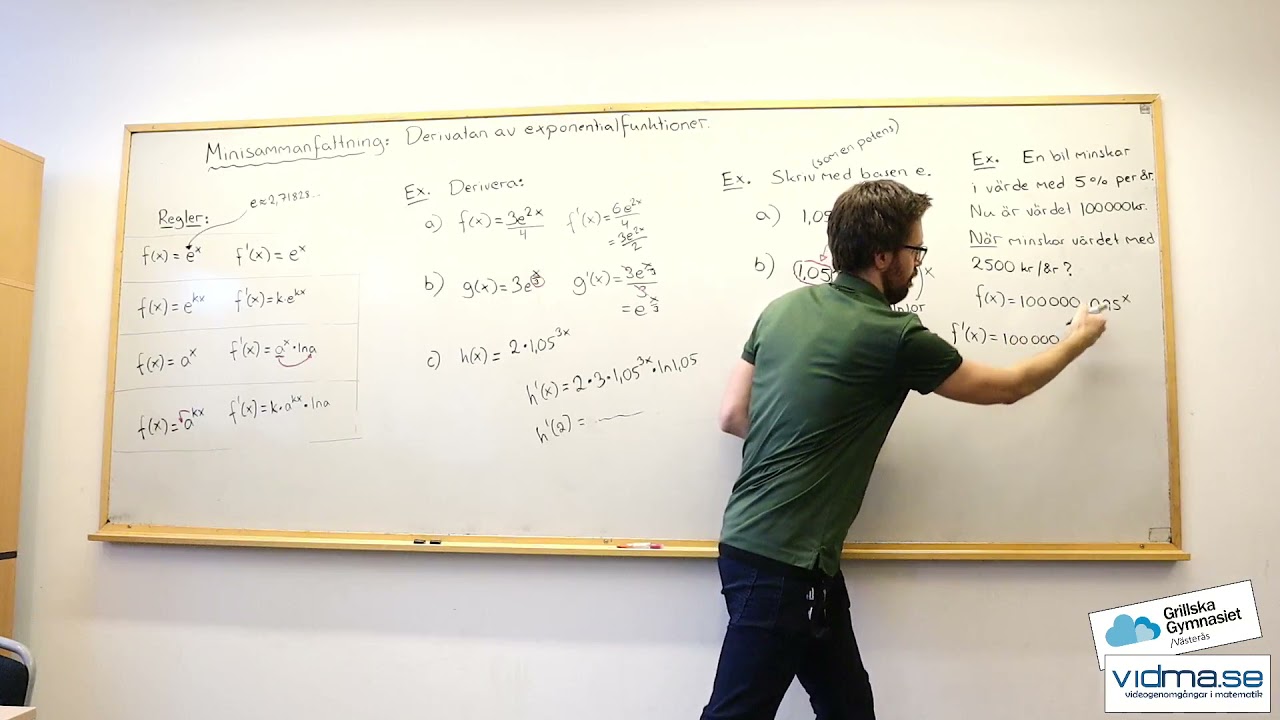 Minisammanfattning: Derivatan av exponentialfunktioner.
e≈2,71828...
Regler:
f(x)=e^x f'(x)=e^x
f(x)=e^{kx} f'(x)=k·e^{kx}
f(x)=a^x f'(x)=a^x·lna
f(x)=a^{kx} f'(x)=k·a^{kx}·lna
Ex. Derivera:
a) f(x)=3e^{2x}/4 f'(x)=6e^{2x}/4
=3e^{2x}/2
b) g(x)=3e^{x/3} g'(x)=3e^{x/3}/3
=e^{x/3}
c) h(x)=2·1,05^{3x}
h'(x)=2·3·1,05^{3x}·ln1,05
h'(2)=
(som en potens)
Ex. Skriv med basen e.
a) 1,05
b) 1,05
Ex. En bil minskar
i värde med 5% per år.
Nu är värdet 100000kr.
När minskar värdet med
2500 kr/år?
f(x)=100000·0,95^x
f'(x)=100000
Grillska
Gymnasiet
/Västerås
vidma.se
videogenomgångar i matematik